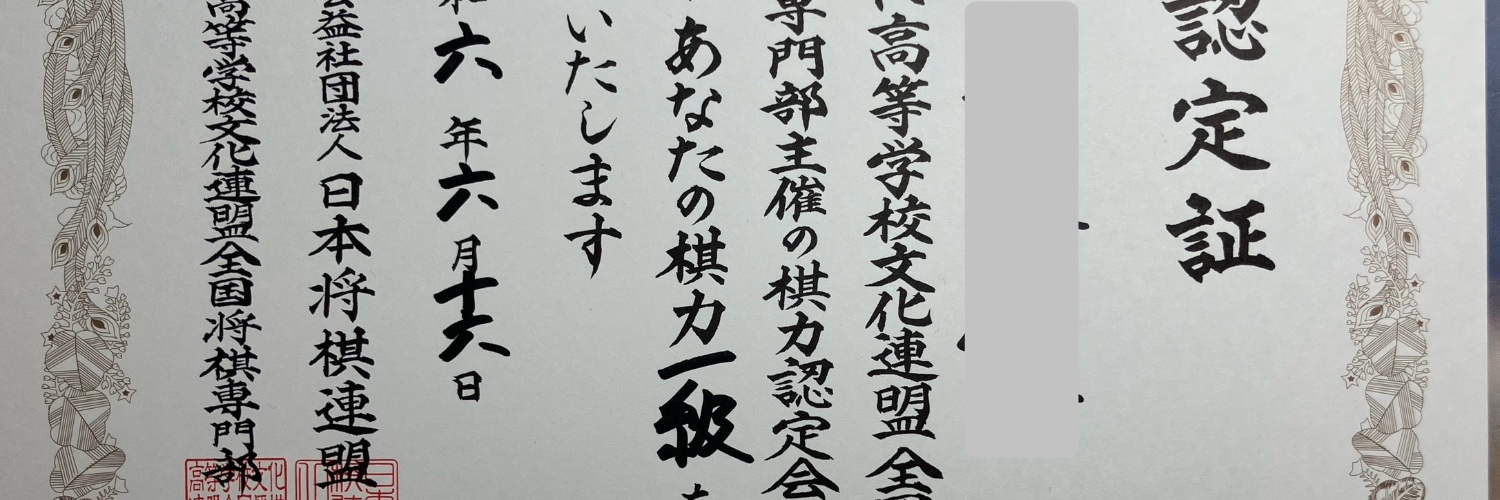 認定証
高等学校文化連盟全
専門部主催の棋力認定会
あなたの棋力一級
いたします
六年六月十六日
益社団法人日本将棋連盟
高等学校文化連盟全国将棋専門部